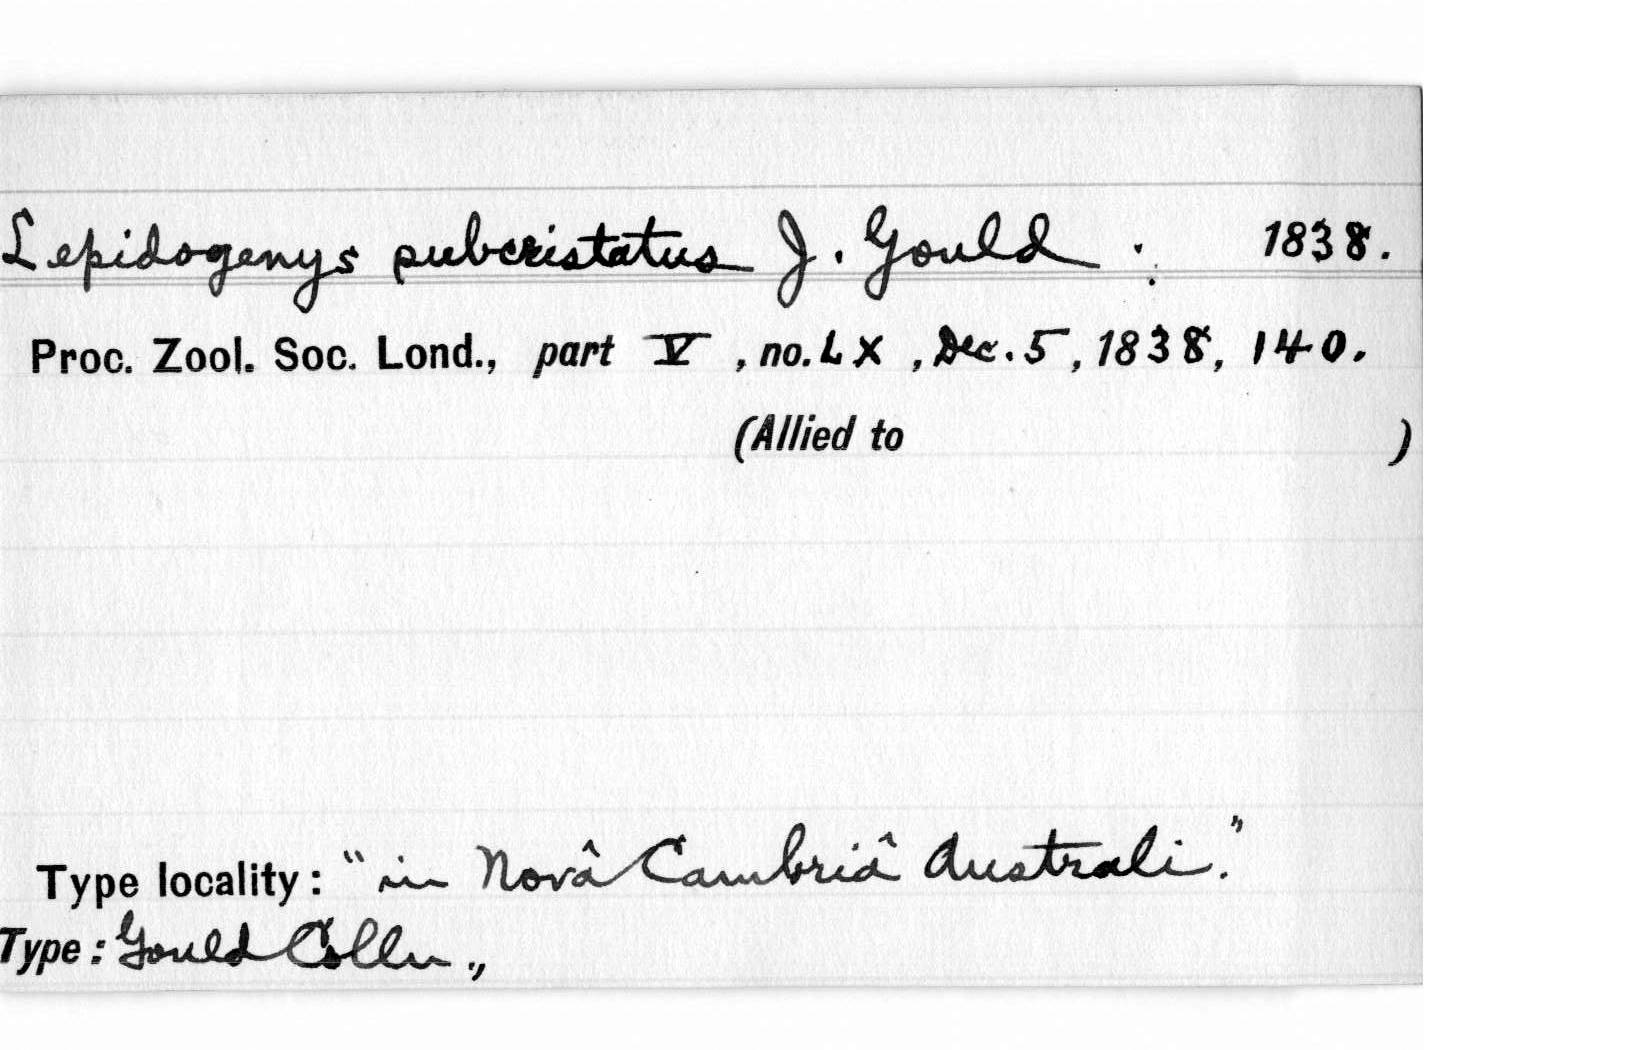 Lepidogenys subcristatus J. Gould : 1838.
Proc. Zool. Soc. Lond., part V, no. LX, Dec. 5, 1838, 140.
(Allied to )
Type locality: "in Novâ Cambriâ Australi."
Type: Gould Colln.,